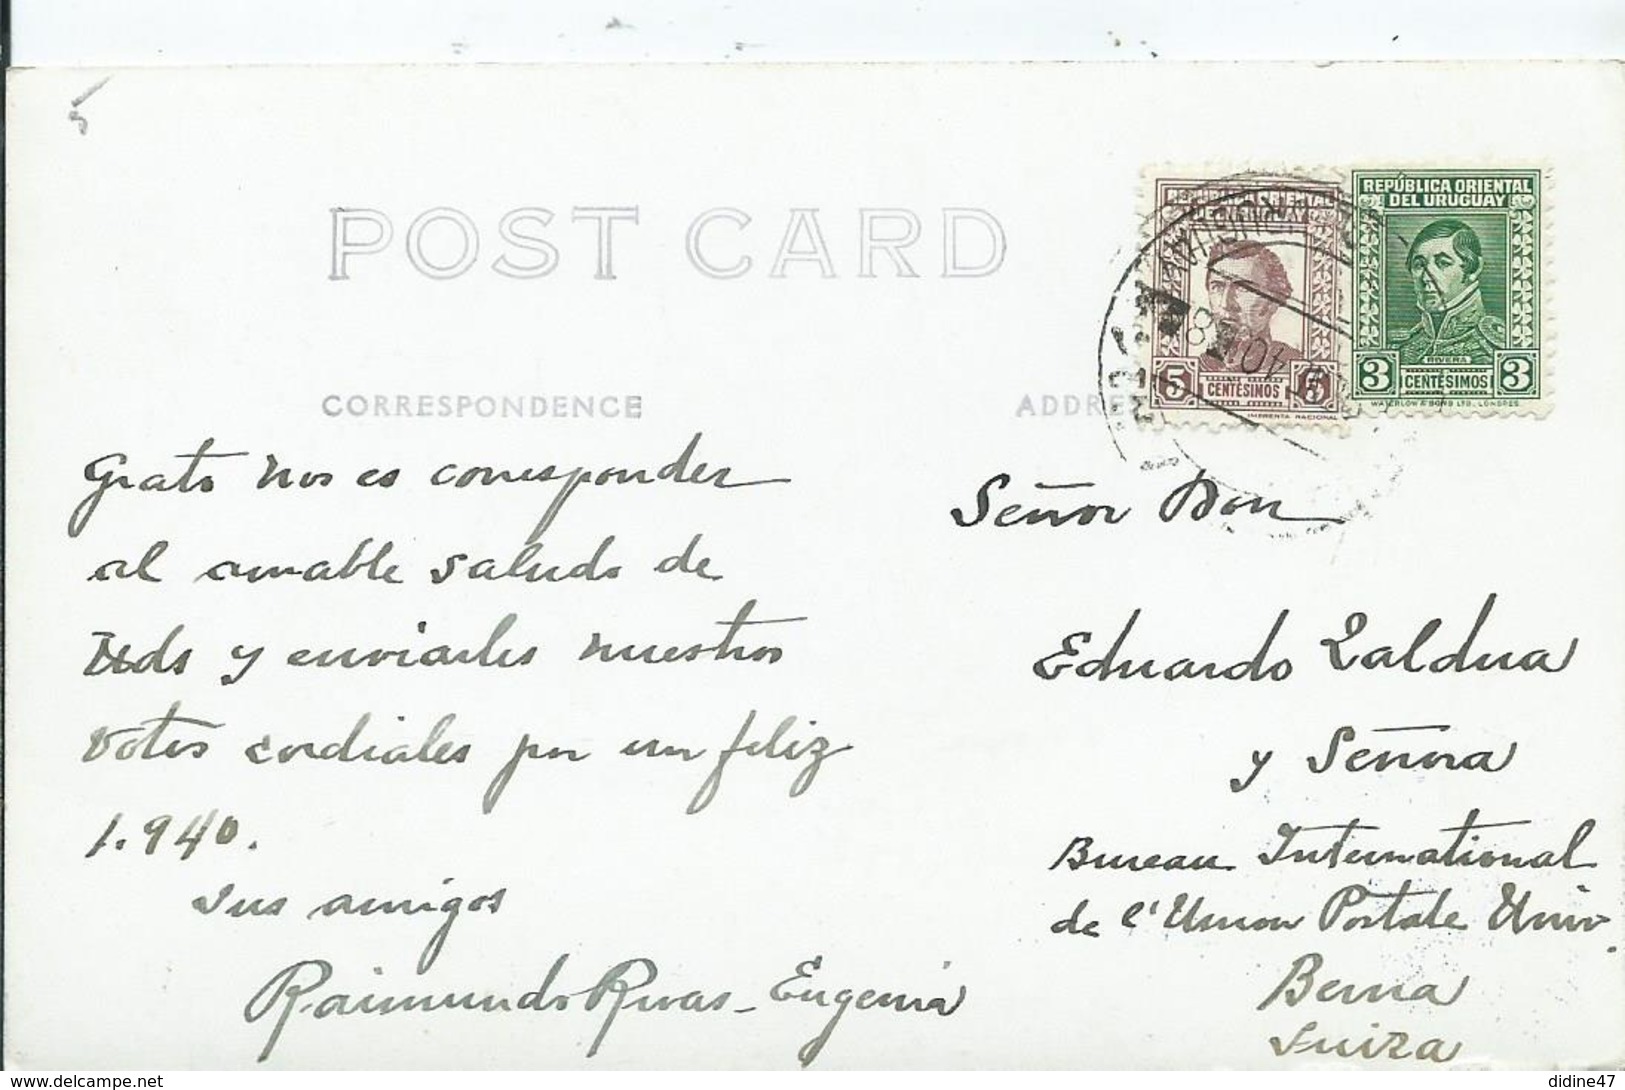 5
POST CARD
REPÚBLICA ORIENTAL
DEL URUGUAY
RIVERA
3 CENTÉSIMOS 3
WATERLOW & SONS LTD., LONDRES
5 CENTÉSIMOS 5
IMPRENTA NACIONAL
40
CORRESPONDENCE
ADDRE
Grato nos es corresponder
al amable saludo de
Uds y enviarles nuestros
votos cordiales por un feliz
1.940.
sus amigos
Raimundo Rivas - Eugenia
Señor Don
Eduardo Zaldua
y Señora
Bureau International
de l'Union Postale Univ.
Berna
Suiza
delcampe.net
didine47